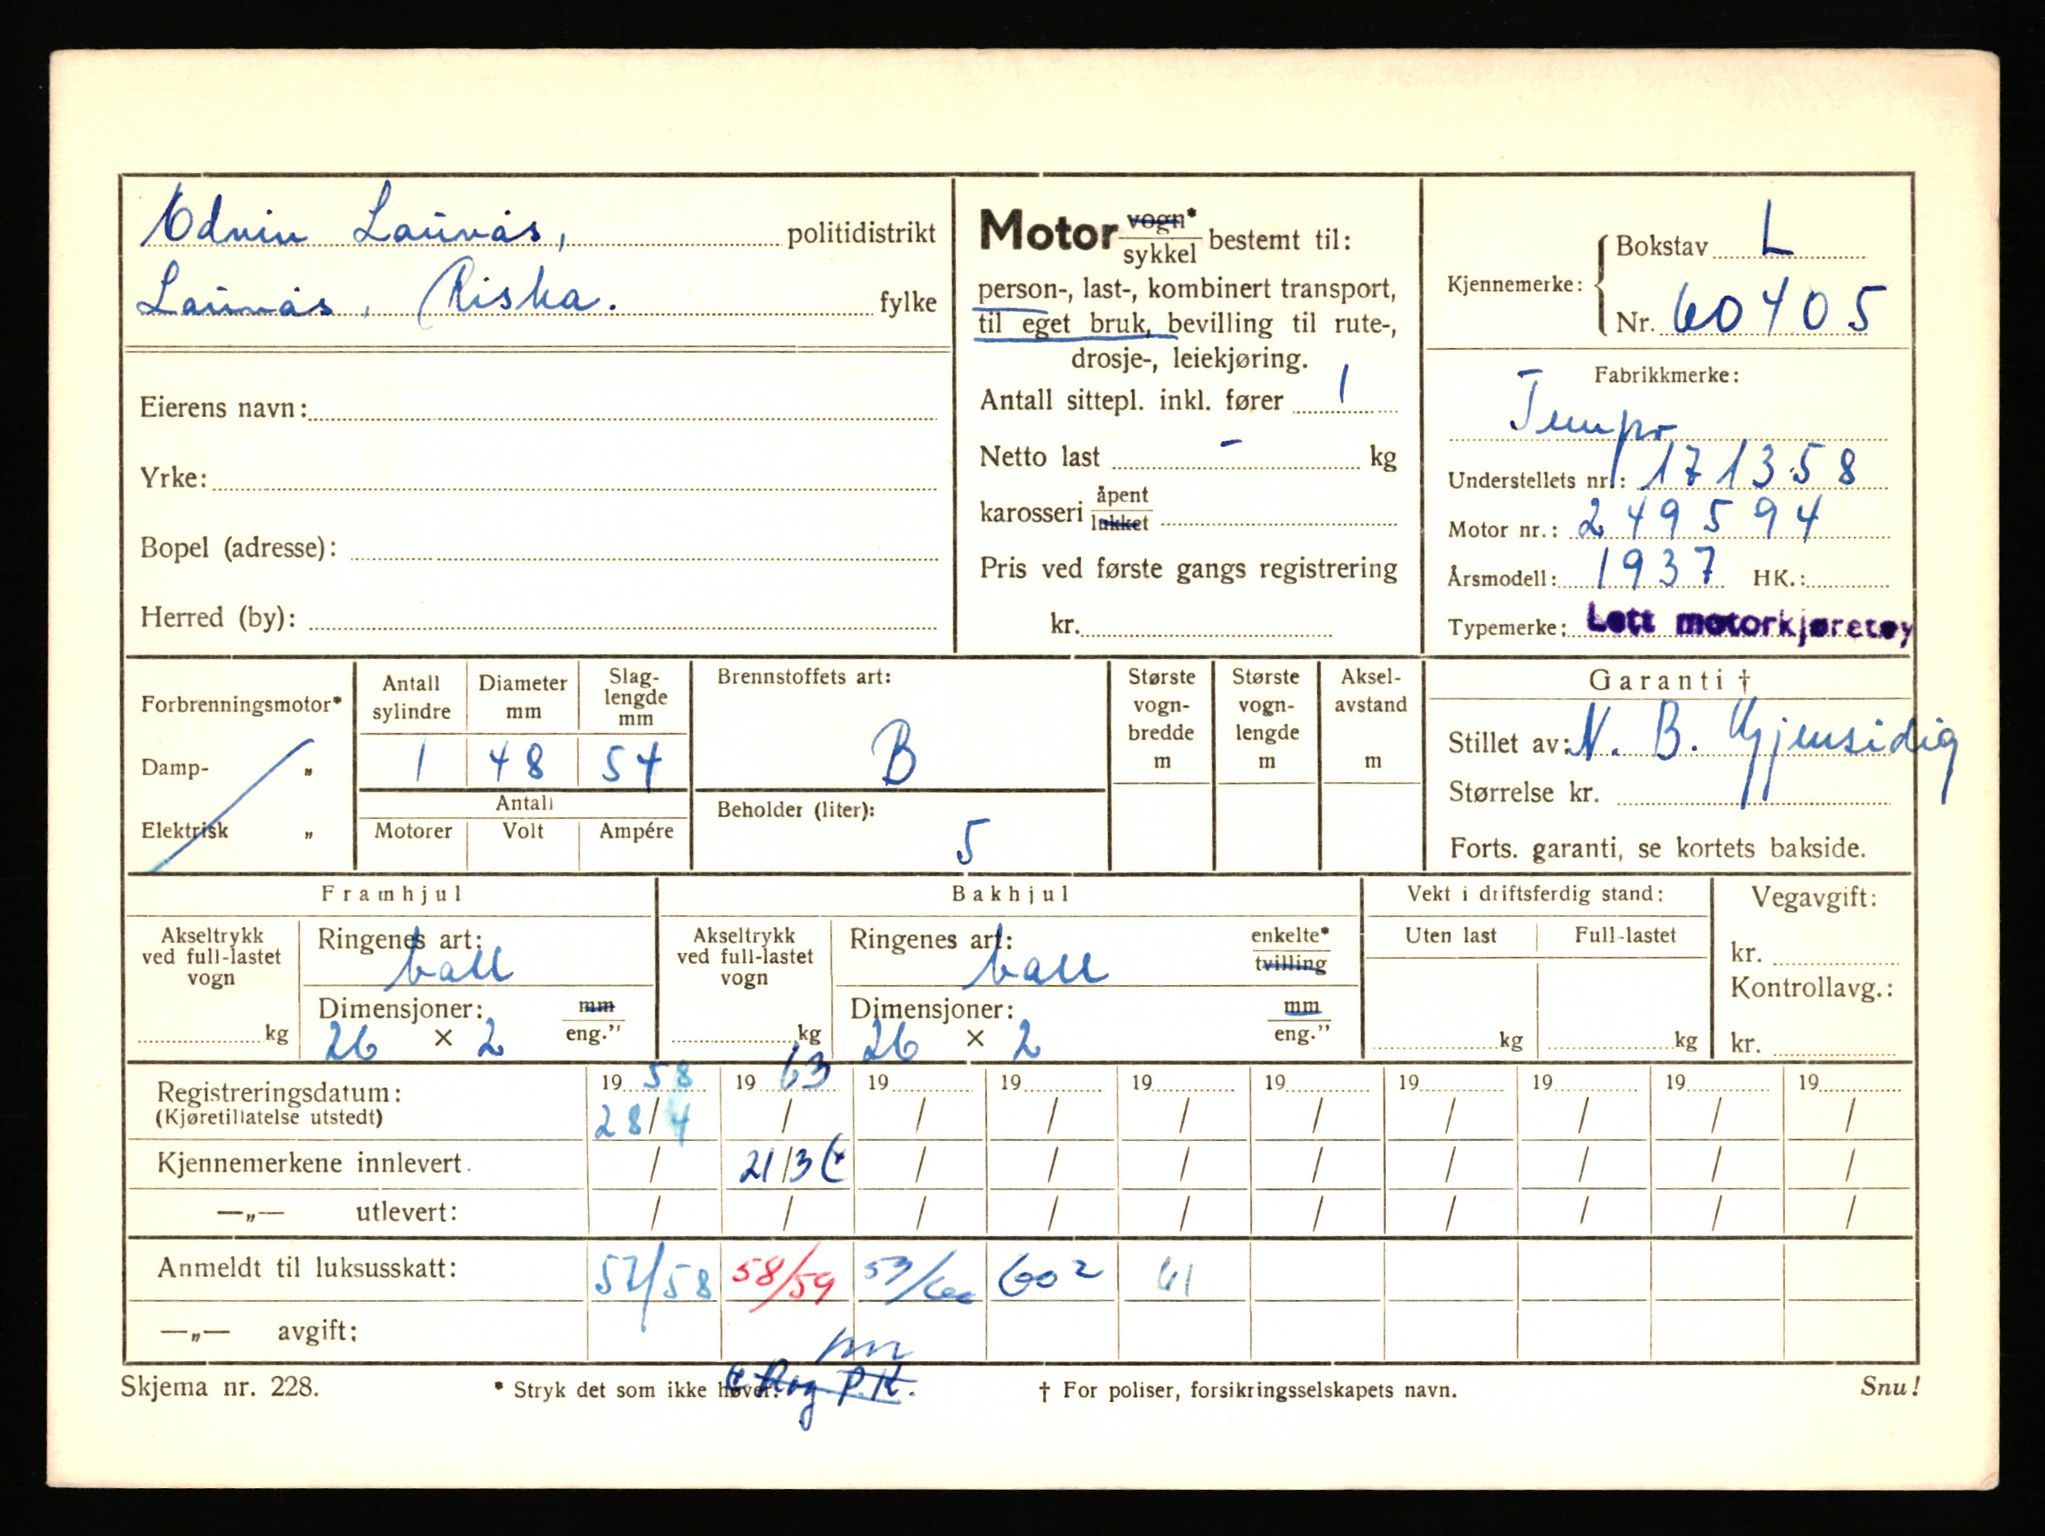 Edvin Launås, politidistrikt
Launås, Riska. fylke
Eierens navn:
Yrke:
Bopel (adresse):
Herred (by):
Motor vogn*
sykkel bestemt til:
person-, last-, kombinert transport,
til eget bruk, bevilling til rute-,
drosje-, leiekjøring.
Antall sittepl. inkl. fører 1
Netto last - kg
karosseri åpent
lukket
Pris ved første gangs registrering
kr.
Kjennemerke: Bokstav L
Nr. 60405
Fabrikkmerke:
Tempo
Understellets nr.: 171358
Motor nr.: 249594
Årsmodell: 1937 HK.:
Typemerke: Lett motorkjøretøy
Forbrenningsmotor*
Damp- „
Elektrisk „
Antall sylindre Diameter mm Slaglengde mm
1 48 54
Antall
Motorer Volt Ampére
Brennstoffets art:
B
Beholder (liter):
5
Største vogn-bredde m
Største vogn-lengde m
Aksel-avstand m
Garanti †
Stillet av: N. B. Gjensidig
Størrelse kr.
Forts. garanti, se kortets bakside.
Framhjul
Akseltrykk
ved full-lastet
vogn
kg
Ringenes art:
ball
Dimensjoner: mm
26 × 2 eng.”
Bakhjul
Akseltrykk
ved full-lastet
vogn
kg
Ringenes art: enkelte*
ball tvilling
Dimensjoner: mm
26 × 2 eng.”
Vekt i driftsferdig stand:
Uten last Full-lastet
kg kg
Vegavgift:
kr.
Kontrollavg.:
kr.
Registreringsdatum: 19 58 19 63 19 19 19 19 19 19 19 19
(Kjøretillatelse utstedt) 28/4 / / / / / / / / /
Kjennemerkene innlevert. / 21/3 / / / / / / / /
—„— utlevert: / / / / / / / / / /
Anmeldt til luksusskatt: 57/58 58/59 59/60 60² 61
—„— avgift:
Rog P.K.
Skjema nr. 228. * Stryk det som ikke høver. † For poliser, forsikringsselskapets navn. Snu!